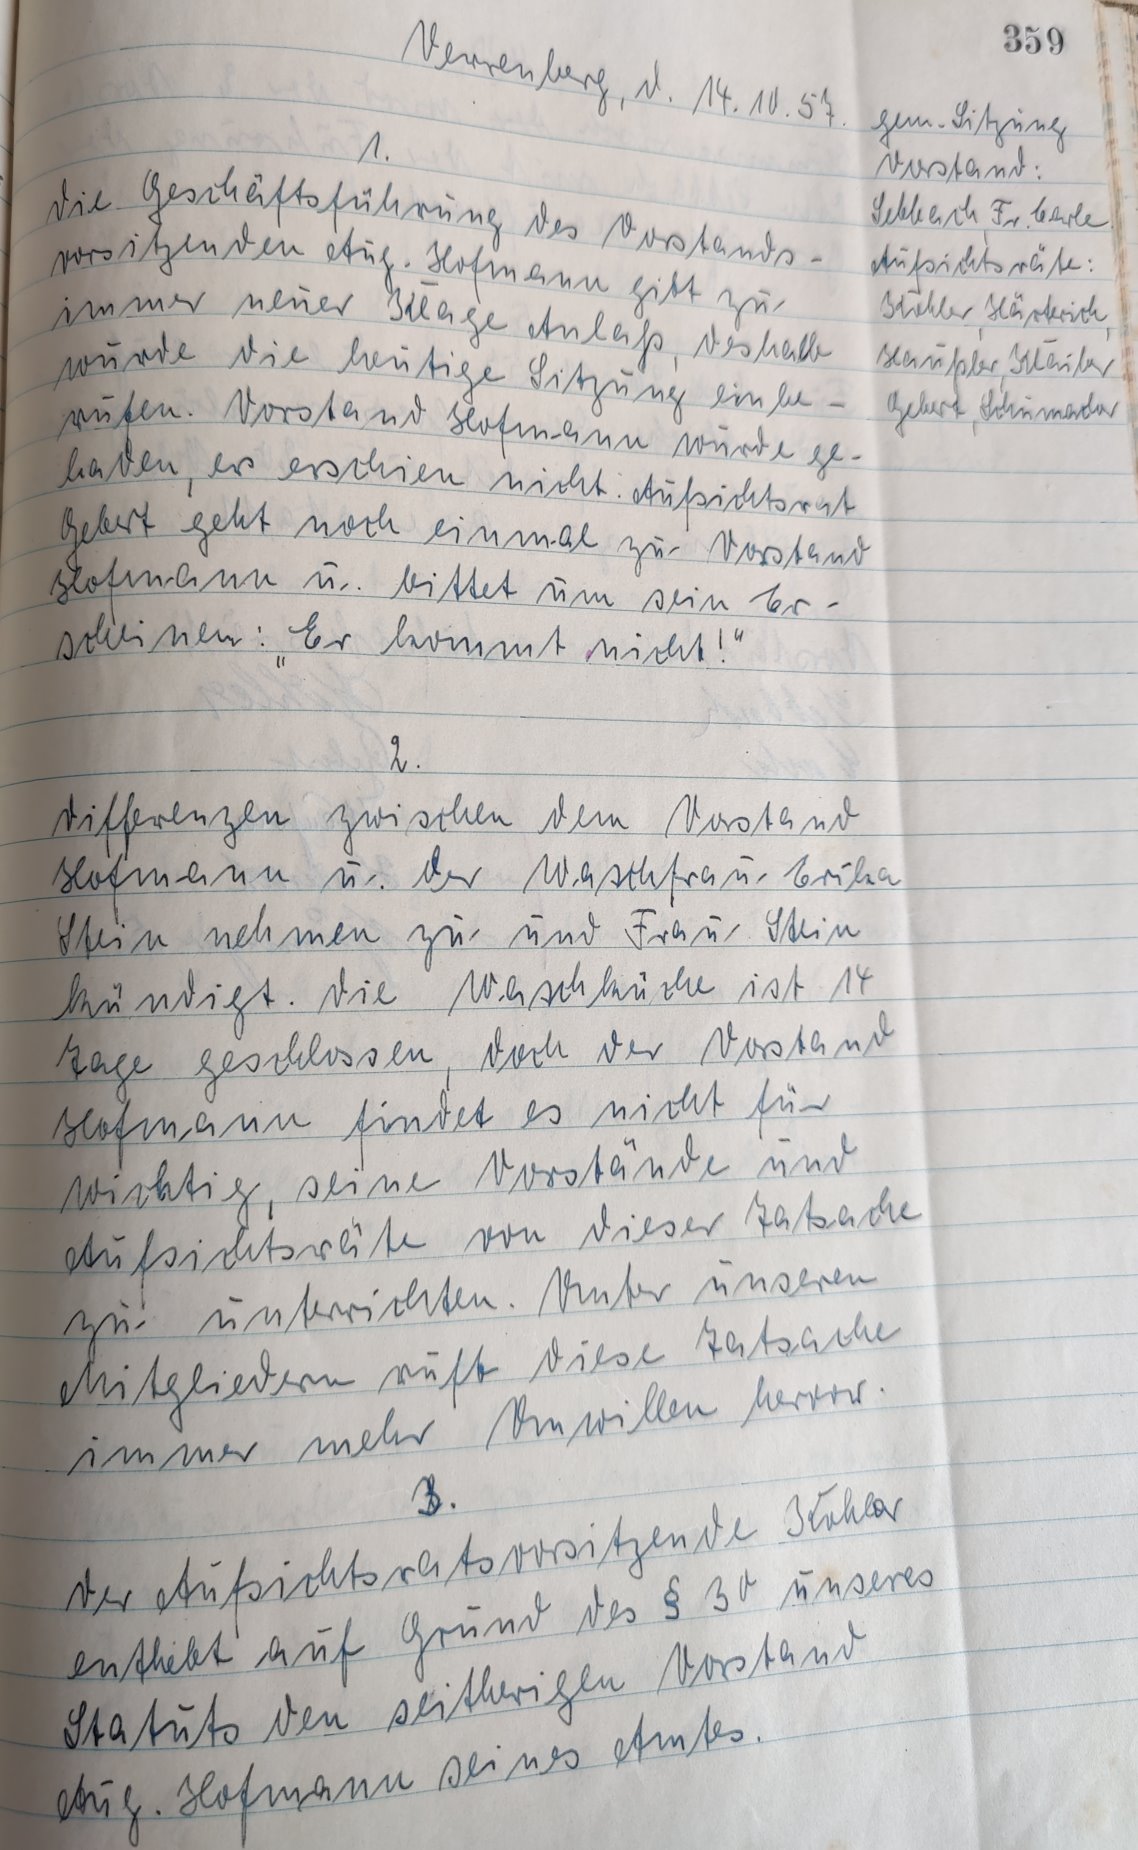 359
Verrenberg, d. 14.10.57.
gem. Sitzung
Vorstand:
Sebbach, Fr. Carle
Aufsichtsräte:
Köhler, Härterich,
Haußler, Kläiber
Gebert, Schumacher
1.
Die Geschäftsführung des Vorstands-
vorsitzenden Aug. Hofmann gibt zu
immer neuer Klage Anlaß, deshalb
wurde die heutige Sitzung einbe-
rufen. Vorstand Hofmann wurde ge-
laden, er erschien nicht. Aufsichtsrat
Gebert geht noch einmal zu Vorstand
Hofmann u. bittet um sein Er-
scheinen: „Er kommt nicht!“
2.
Differenzen zwischen dem Vorstand
Hofmann u. der Waschfrau Erika
Stein nehmen zu und Frau Stein
kündigt. Die Waschküche ist 14
Tage geschlossen, doch der Vorstand
Hofmann findet es nicht für
wichtig, seine Vorstände und
Aufsichtsräte von dieser Tatsache
zu unterrichten. Unter unseren
Mitgliedern ruft diese Tatsache
immer mehr Unwillen hervor.
3.
Der Aufsichtsratsvorsitzende Köhler
enthebt auf Grund des § 30 unseres
Statuts den seitherigen Vorstand
Aug. Hofmann seines Amtes.